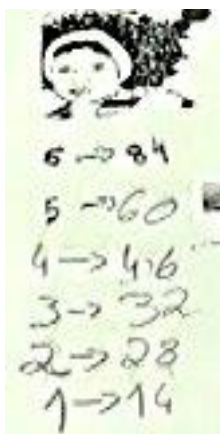 6 → 84
5 → 60
4 → 46
3 → 32
2 → 28
1 → 14